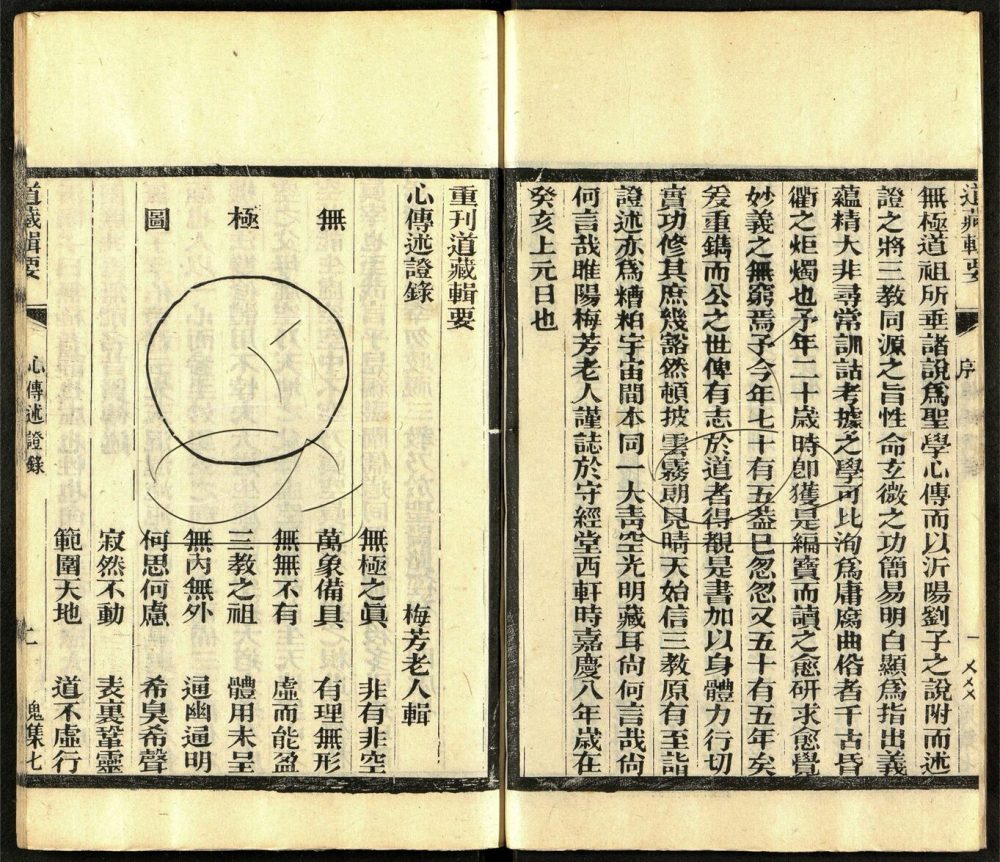 道藏輯要
序
一
無極道祖所垂諸說爲聖學心傳而以沂陽劉子之說附而述
證之將三教同源之旨性命玄微之功簡易明白顯爲指出義
蘊精大非尋常訓詁考據之學可比洵爲庸腐曲俗者千古昏
衢之炬燭也予年二十歲時卽獲是編寶而讀之愈研求愈覺
妙義之無窮焉予今年七十有五葢巳忽忽又五十有五年矣
爰重鐫而公之世俾有志於道者得覩是書加以身體力行切
實功修其庶幾豁然頓披雲霧朗見晴天始信三教原有至詣
證述亦爲糟粕宇宙間本同一大靑空光明藏耳尙何言哉尙
何言哉睢陽梅芳老人謹誌於守經堂西軒時嘉慶八年歲在
癸亥上元日也
重刊道藏輯要
心傳述證錄
梅芳老人輯
無
極
圖
無極之眞 非有非空
萬象備具 有理無形
無無不有 虛而能盈
三教之祖 體用未呈
無內無外 通幽通明
何思何慮 希臭希聲
寂然不動 表裏鞏靈
範圍天地 道不虛行
道藏輯要
心傳述證錄
鬼集七